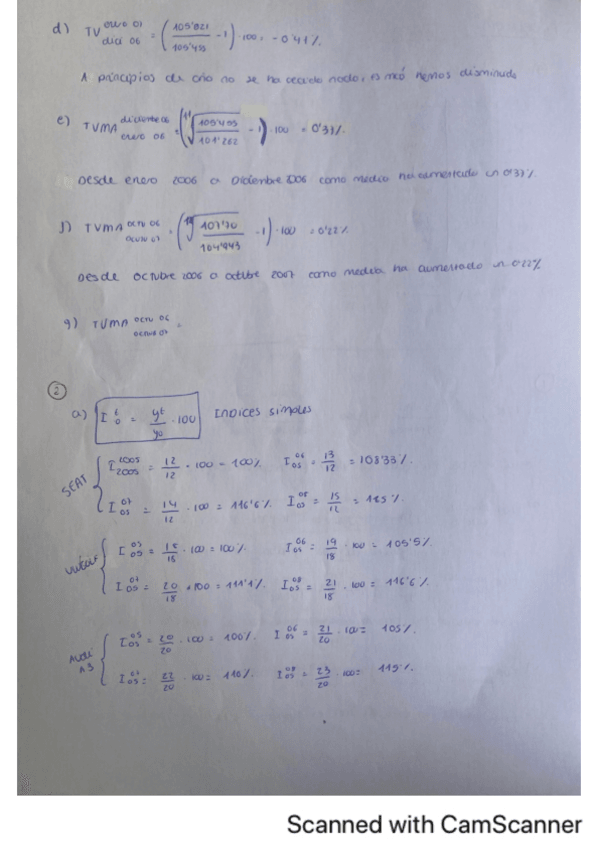 d) TV enero 07 dici 06 = (105'021 / 105'455 - 1) · 100 = - 0'41%
A principios de año no se ha crecido nada, es más hemos disminuido
e) TVMA diciembre 06 enero 06 = (¹¹√105'455 / 101'262 - 1) · 100 = 0'37%.
Desde enero 2006 a Diciembre 2006 como media ha aumentado un 0'37%
f) TVMA octu 06 octu 07 = (¹²√107'70 / 104'943 - 1) · 100 = 0'22%
Desde octubre 2006 a octubre 2007 como media ha aumentado un 0'22%
g) TVMA octu 06 octu 07 =
2
a) I t 0 = yt / yo · 100 Indices simples
SEAT
I 2005 2005 = 12/12 · 100 = 100% I 06 05 = 13/12 = 108'33%.
I 07 05 = 14/12 · 100 = 116'6% I 08 05 = 15/12 = 125%
I 05 05 = 18/18 · 100 = 100% I 06 05 = 19/18 · 100 = 105'5%
I 07 05 = 20/18 · 100 = 111'1% I 08 05 = 21/18 · 100 = 116'6%
Audi A3
I 05 05 = 20/20 · 100 = 100% I 06 05 = 21/20 · 100 = 105%
I 07 05 = 22/20 · 100 = 110% I 08 05 = 23/20 · 100 = 115%
Scanned with CamScanner